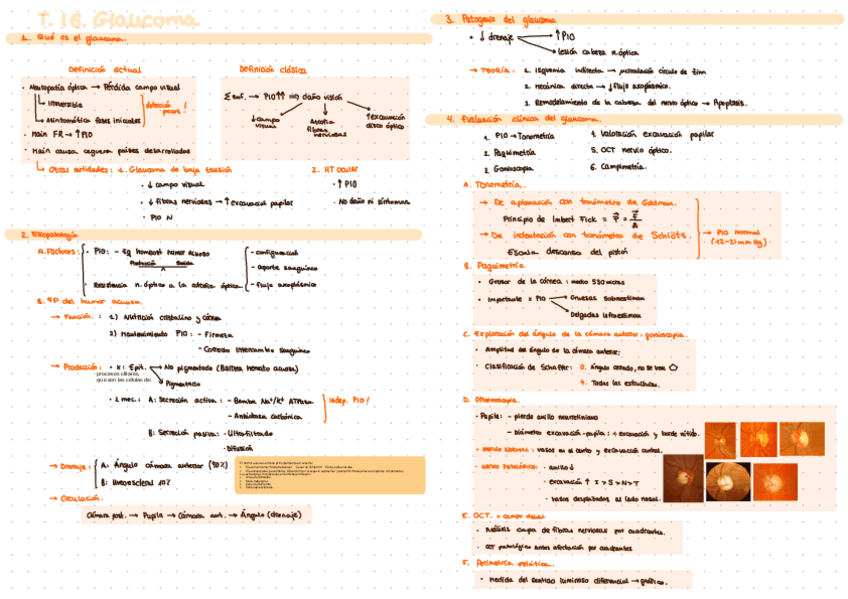 T. 16. Glaucoma
1. Qué es el glaucoma.
Definición actual
· Neuropatía óptica → Pérdida campo visual
→ Irreversible
→ Asintomática fases iniciales
detección precoz!
· Main FR → ↑PIO
· Main causa ceguera países desarrollados
Definición clásica
Σ enf. → PIO↑↑ ⇒ daño visión
↓campo visual
Atrofia fibras nerviosas
↑excavación disco óptico
→ Otras entidades: 1. Glaucoma de baja tensión
· ↓ campo visual
· ↓ fibras nerviosas → ↑ excavación papilar
· PIO N
2. HT ocular
· ↑ PIO
· No daño ni síntomas
2. Fisiopatología
A. Factores:
· PIO: - Eq homeost humor acuoso
Producción Salida
· Resistencia n. óptico a la atrofia óptica
- configuración
- aporte sanguíneo
- flujo axoplásmico
B. FP del humor acuoso.
→ Función: 1) Nutrición cristalino y córnea
2) Mantenimiento PIO: - Firmeza
- Correcto intercambio sanguíneo
→ Producción: · x: Epit. → No pigmentado (Barrera hemato acuosa)
procesos ciliares, que son las células de:
Pigmentario
· 2 mec.: A: Secreción activa: - Bomba Na⁺/K⁺ ATPasa
- Anhidrasa carbónica
Indep. PIO!
B: Secreción pasiva: - Ultrafiltrado
- Difusión
→ Drenaje: A: Ángulo cámara anterior (90%)
B: Uveoescleral 10%
→ Circulación.
Cámara post. → Pupila → Cámara ant. → Ángulo (drenaje)
3. Patogenia del glaucoma
· ↓ drenaje → ↑PIO
→ Lesión cabeza n. óptico
→ TEORÍA: 1. Isquemia indirecta →
2. Mecánica directa → ↓flujo axoplásmico.
3. Remodelamiento de la cabeza del nervio óptico → Apoptosis.
4. Evaluación clínica del glaucoma.
1. PIO → Tonometría
2. Paquimetría
3. Gonioscopia
4. Valoración excavación papilar
5. OCT nervio óptico.
6. Campimetría.
A. Tonometría.
→ De aplanación con tonómetro de Goldman.
Principio de Imbert Fick = P = F/A
→ De indentación con tonómetro de Schiötz.
Escala descenso del pistón
→ PIO Normal (12-21 mmHg)
B. Paquimetría
· Grosor de la córnea: medio 550 micras
· Importante x PIO → Gruesas sobreestiman
Delgadas infraestiman
C. Exploración del ángulo de la cámara anterior: gonioscopia.
· Amplitud del ángulo de la cámara anterior.
· Clasificación de Schaffer: 0. Ángulo cerrado, no se ven
4. Todas las estructuras.
D. Oftalmoscopia.
- Papila: - pierde anillo neuroretiniano
- Diámetro excavación-papila: ↑ excavación y borde nítido.
· NERVIO NORMAL: vasos en el centro y excavación central
· NERVIO PATOLÓGICO: · anillo↓
· excavación ↑ I > S > N > T
· vasos desplazados al lado nasal.
E. OCT. + campo visual
· Análisis capa de fibras nerviosas por cuadrantes.
· OCT patológico antes afectación por cuadrantes
F. Perimetría estática.
· medida del umbral luminoso diferencial → gráfico.